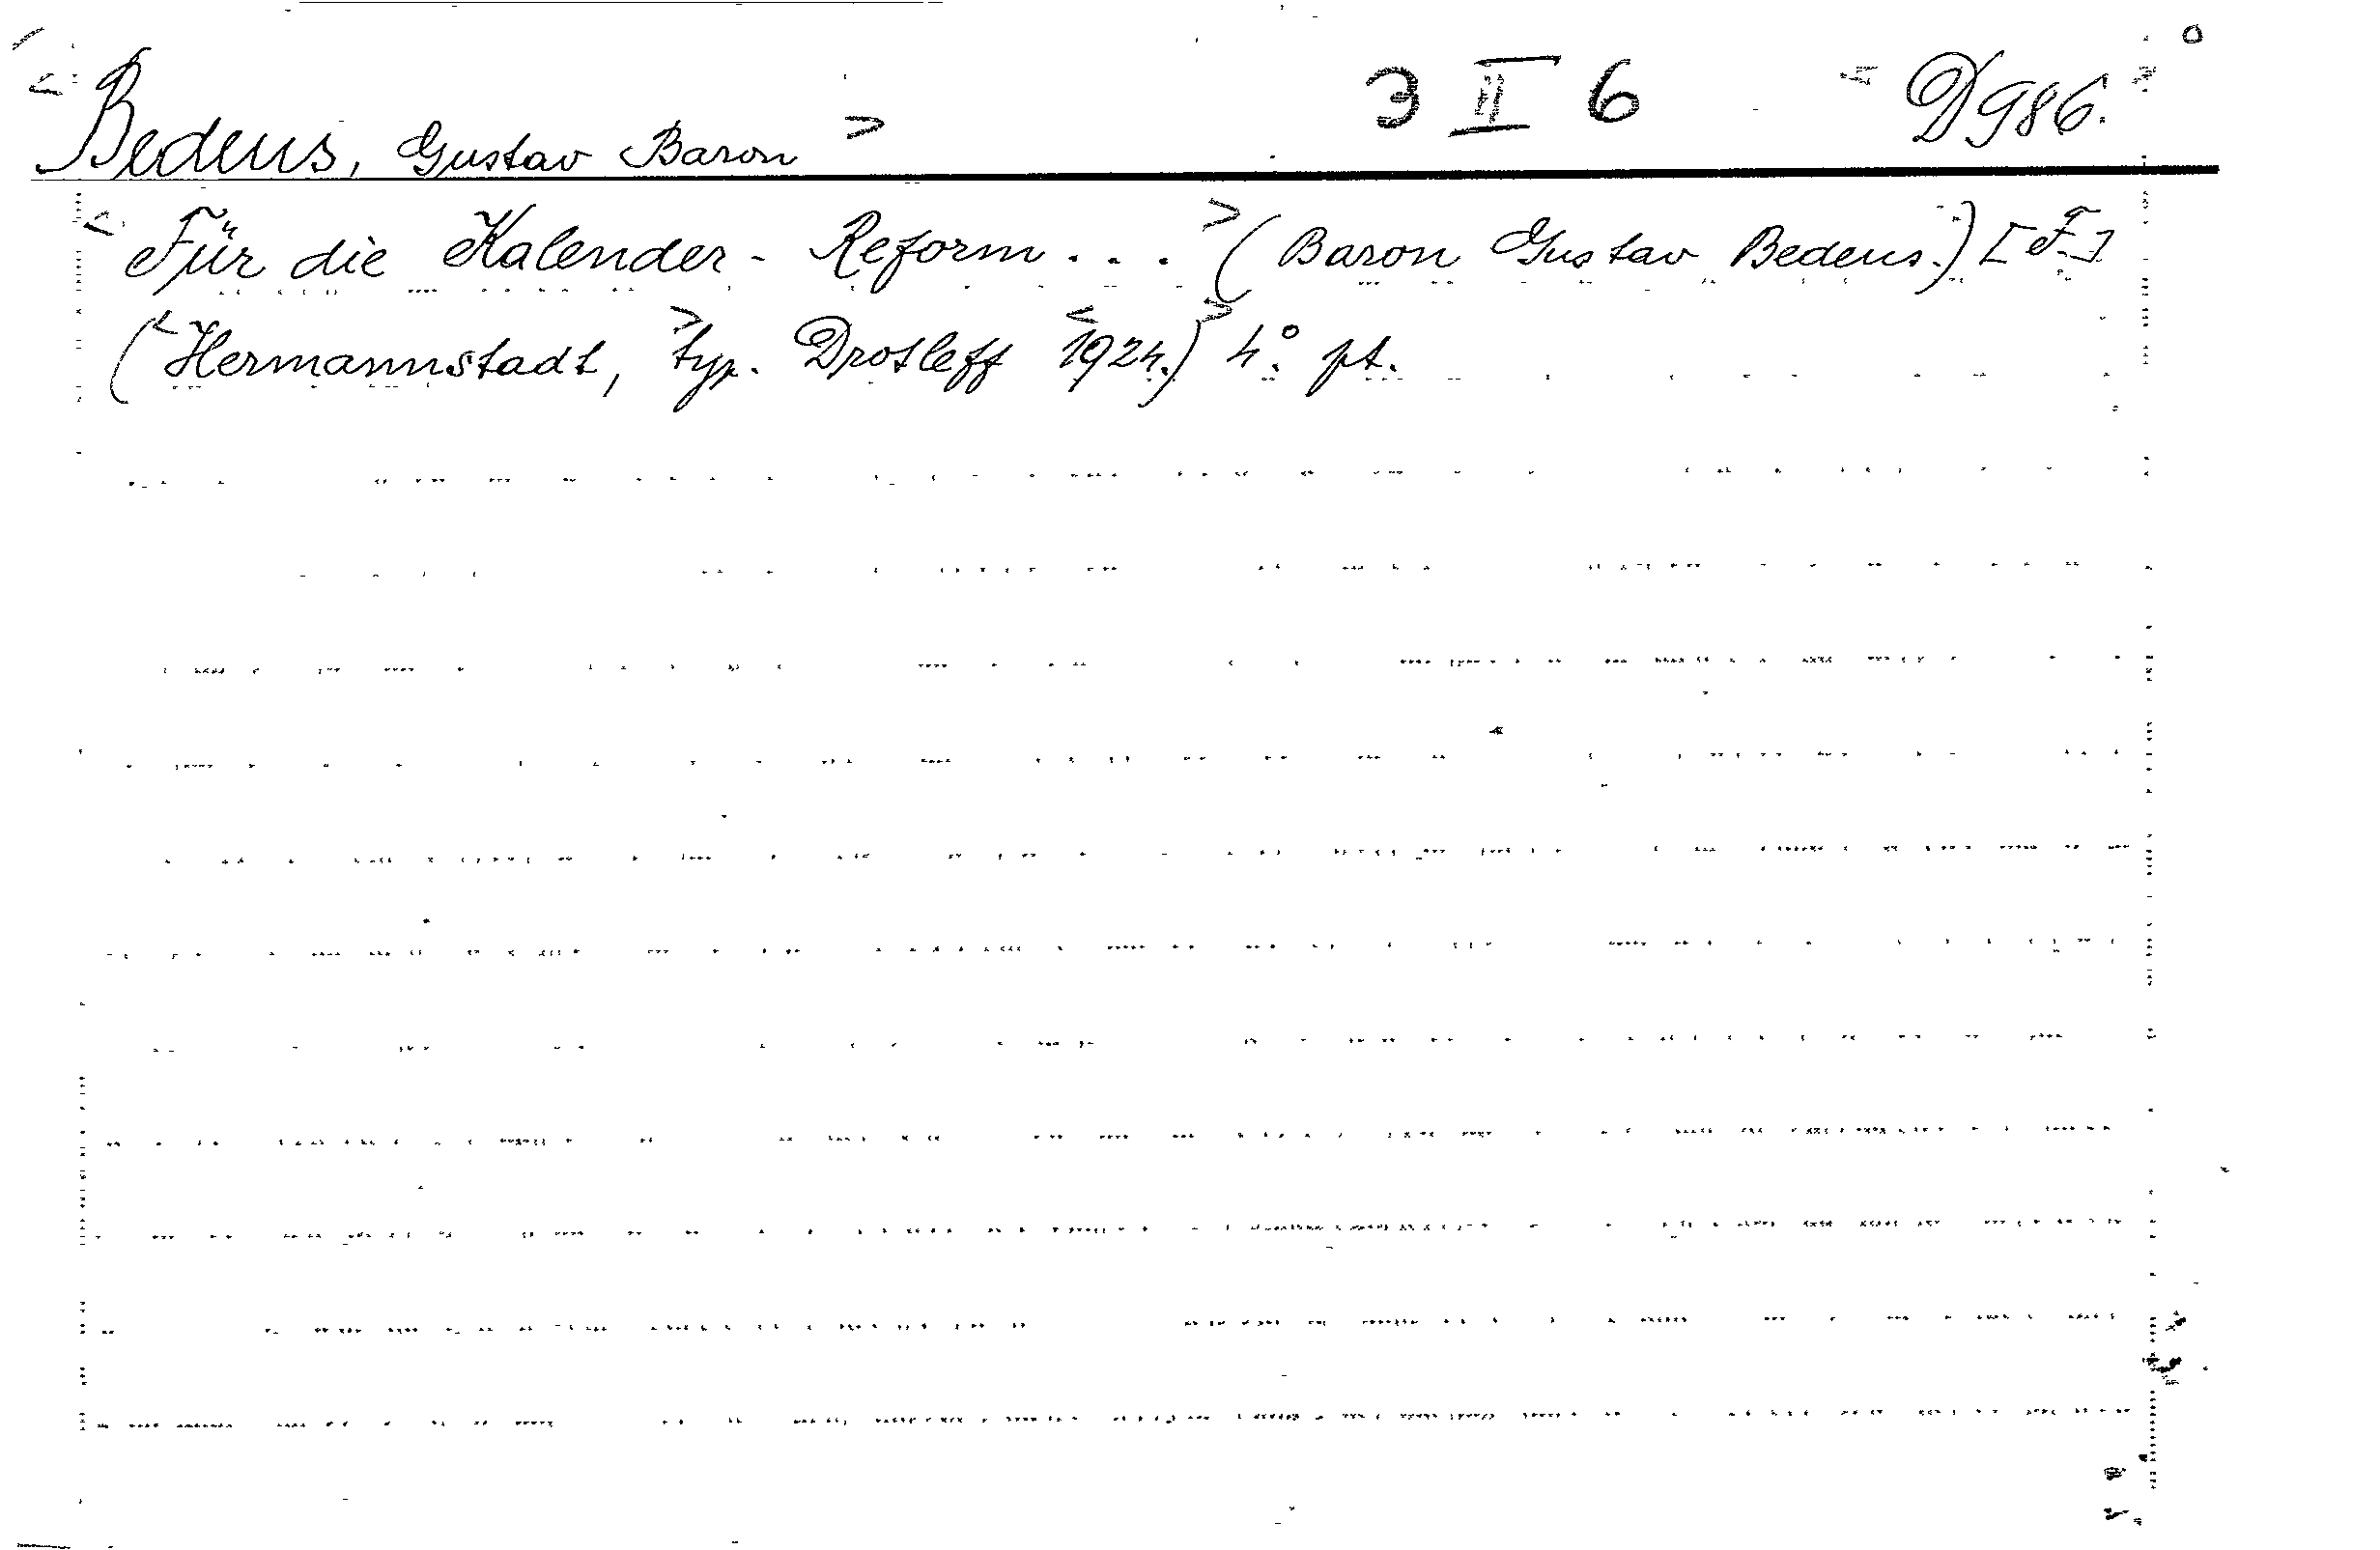 <Bedeus, Gustav Baron> 3 II 6 D 986.
<Für die Kalender-Reform...> (Baron Gustav Bedeus.) [F.]
(<Hermannstadt,> typ. Drotleff <1924.)> 4° pt.